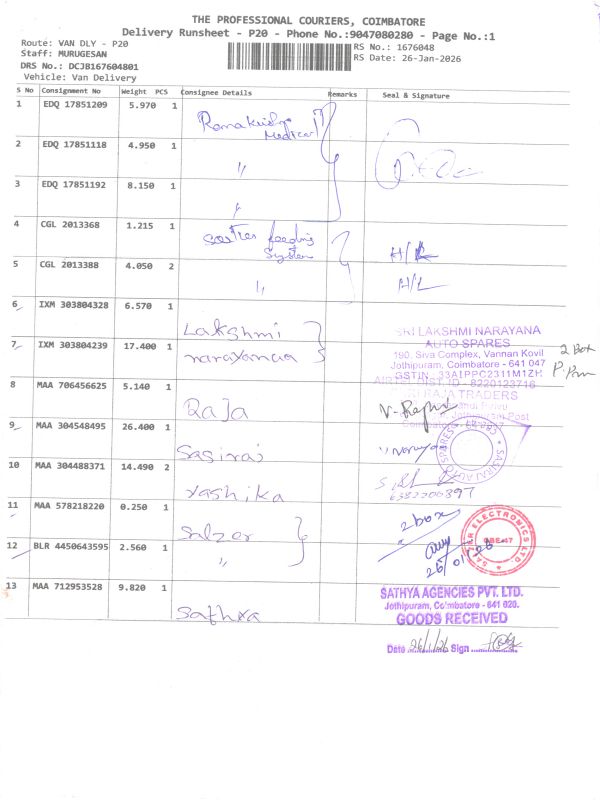 THE PROFESSIONAL COURIERS, COIMBATORE
Delivery Runsheet - P20 - Phone No.:9047080280 - Page No.:1
Route: VAN DLY - P20
Staff: MURUGESAN
DRS No.: DCJB167604801
Vehicle: Van Delivery
RS No.: 1676048
RS Date: 26-Jan-2026
S No Consignment No Weight PCS Consignee Details Remarks Seal & Signature
1 EDQ 17851209 5.970 1
Ramakrishna Medical
2 EDQ 17851118 4.950 1 〃
3 EDQ 17851192 8.150 1 〃
4 CGL 2013368 1.215 1
feeding System H/L
5 CGL 2013388 4.050 2 〃 H/L
6 IXM 303804328 6.570 1
Lakshmi
7 IXM 303804239 17.400 1
narayanaa
SRI LAKSHMI NARAYANA
AUTO SPARES
190, Siva Complex, Vannan Kovil
Jothipuram, Coimbatore - 641 047
GSTIN 33AIPPC2311M1ZH
2 Box
8 MAA 706456625 5.140 1
RaJa
RAJA TRADERS
9 MAA 304548495 26.400 1
Sasirai
SASIRAJ AUTO SPARES
10 MAA 304488371 14.490 2
Yashika
6382200397
11 MAA 578218220 0.250 1
Salzer
2 box
12 BLR 4450643595 2.560 1 〃
26/01/26
SALZER ELECTRONICS LTD.
CBE-47
13 MAA 712953528 9.820 1
Sathya
SATHYA AGENCIES PVT. LTD.
Jothipuram, Coimbatore - 641 020.
GOODS RECEIVED
Date 26/1/26 Sign